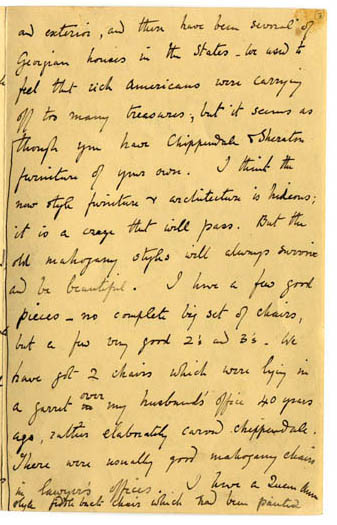 and exterior, and there have been several of
Georgian houses in the States - we used to
feel that rich Americans were carrying
off too many treasures; but it seems as
though you have Chippendale & Sheraton
furniture of your own. I think the
new style furniture & architecture is hideous;
it is a craze that will pass. But the
old mahogany styles will always survive
and be beautiful. I have a few good
pieces - no complete big set of chairs,
but a few very good 2's and 3's. We
have got 2 chairs which were lying in
a garret over my husband's office 40 years
ago, rather elaborately carved chippendale.
There were usually good mahogany chairs
in lawyer's offices. I have a Queen Anne
style fiddle back chair which had been painted